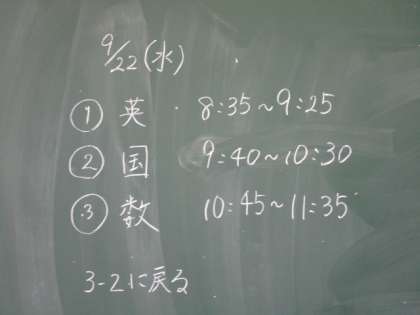 9/22(水)
① 英 8:35~9:25
② 国 9:40~10:30
③ 数 10:45~11:35
3-2に戻る